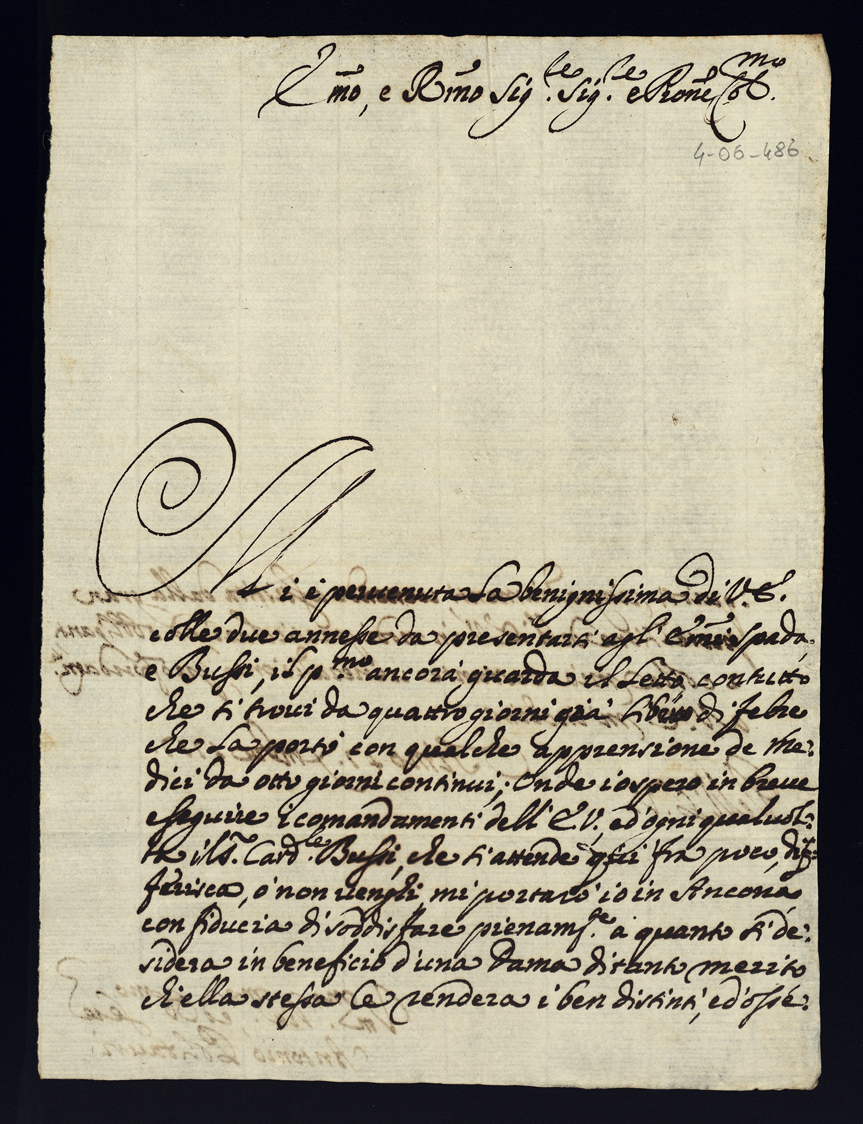 Emo, e Rmo Sig.re Sig.re e Prone Col.mo
4-06-486
Mi è pervenuta la benignissima di V.E.
colle due annesse da presentarsi agl' Emi Spada,
e Bussi, il p.mo ancora guarda il letto contutto
che si trovi da quattro giorni già libero di febre
che la portò con qualche apprensione de Me:
dici da otto giorni continui; Onde io spero in breve
esseguire i comandamenti dell' E.V. ed' ogni qualvol:
ta il S.r Card.le Bussi, che si attende qui fra poco, dif:
ferisca, ò non venghi, mi portarò io in Ancona
con fiducia di soddisfare pienam.te a quanto si de:
sidera in beneficio d'una Dama di tanto merito
ch'ella stessa le renderà i ben distinti, ed' ossé: